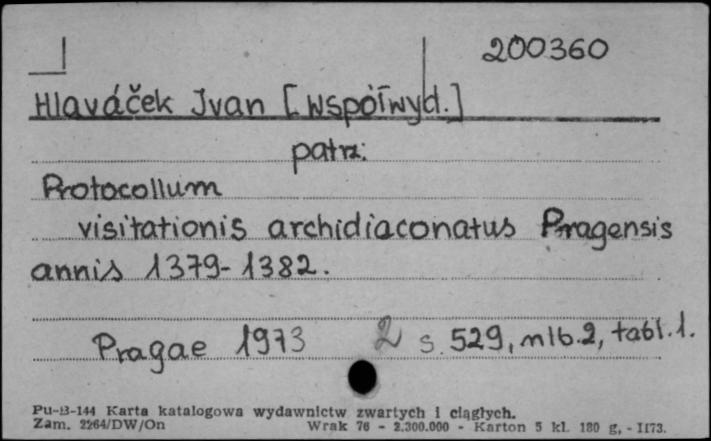 200360
Hlaváček Ivan [współwyd.]
patrz:
Protocollum
visitationis archidiaconatus Pragensis
annis 1379-1382.
Pragae 1973 2 s. 529, nlb. 2, tabl. 1.
Pu-B-144 Karta katalogowa wydawnictw zwartych i ciągłych.
Zam. 2264/DW/On Wrak 76 - 2.300.000 - Karton 5 kl. 180 g, - II73.